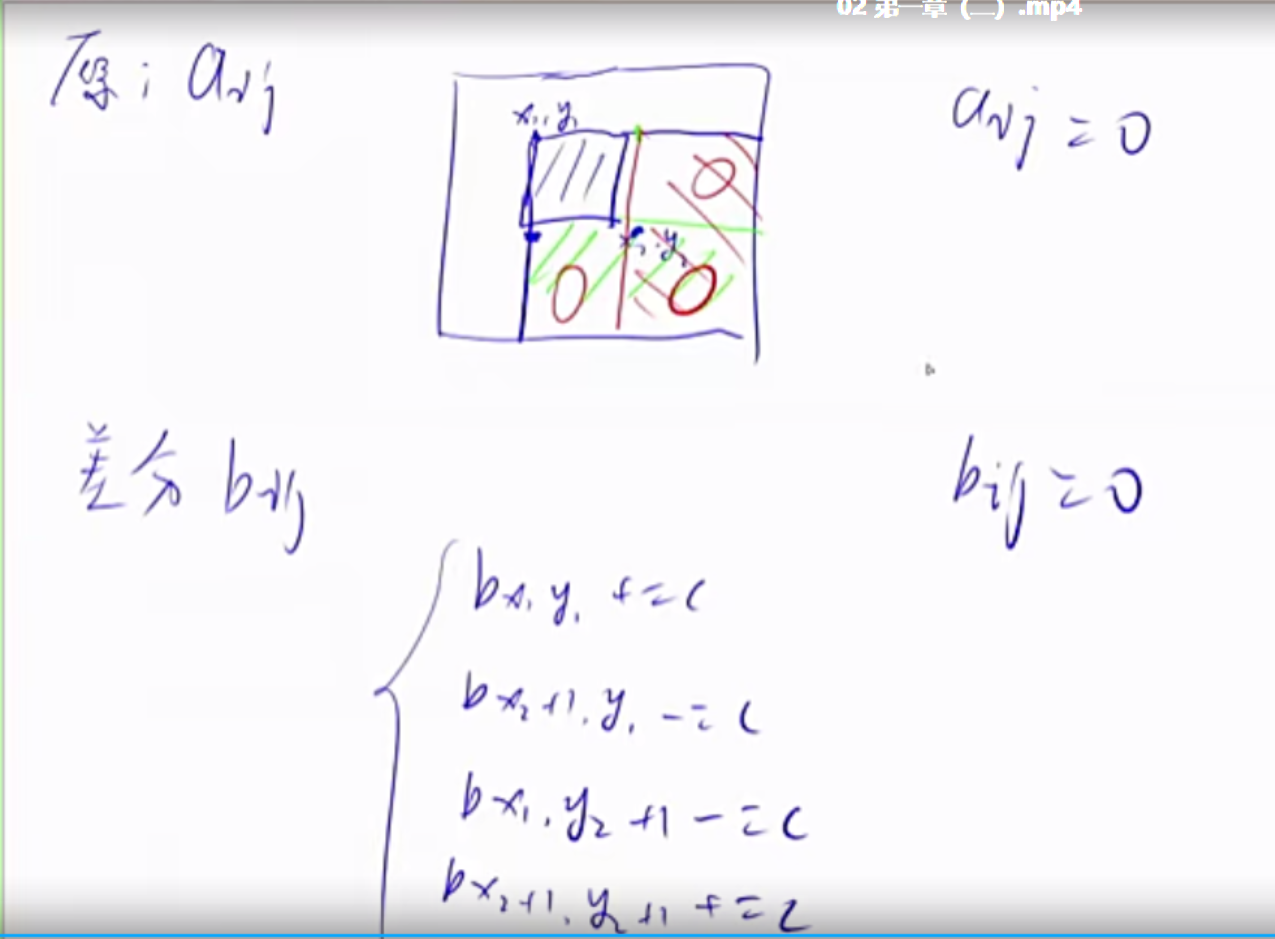 02 第一章（二）.mp4
原：aij
aij = 0
x1, y1
0
x2, y2
0 0
差分 bij
bij = 0
bx1, y1 += c
bx2+1, y1 -= c
bx1, y2+1 -= c
bx2+1, y2+1 += c